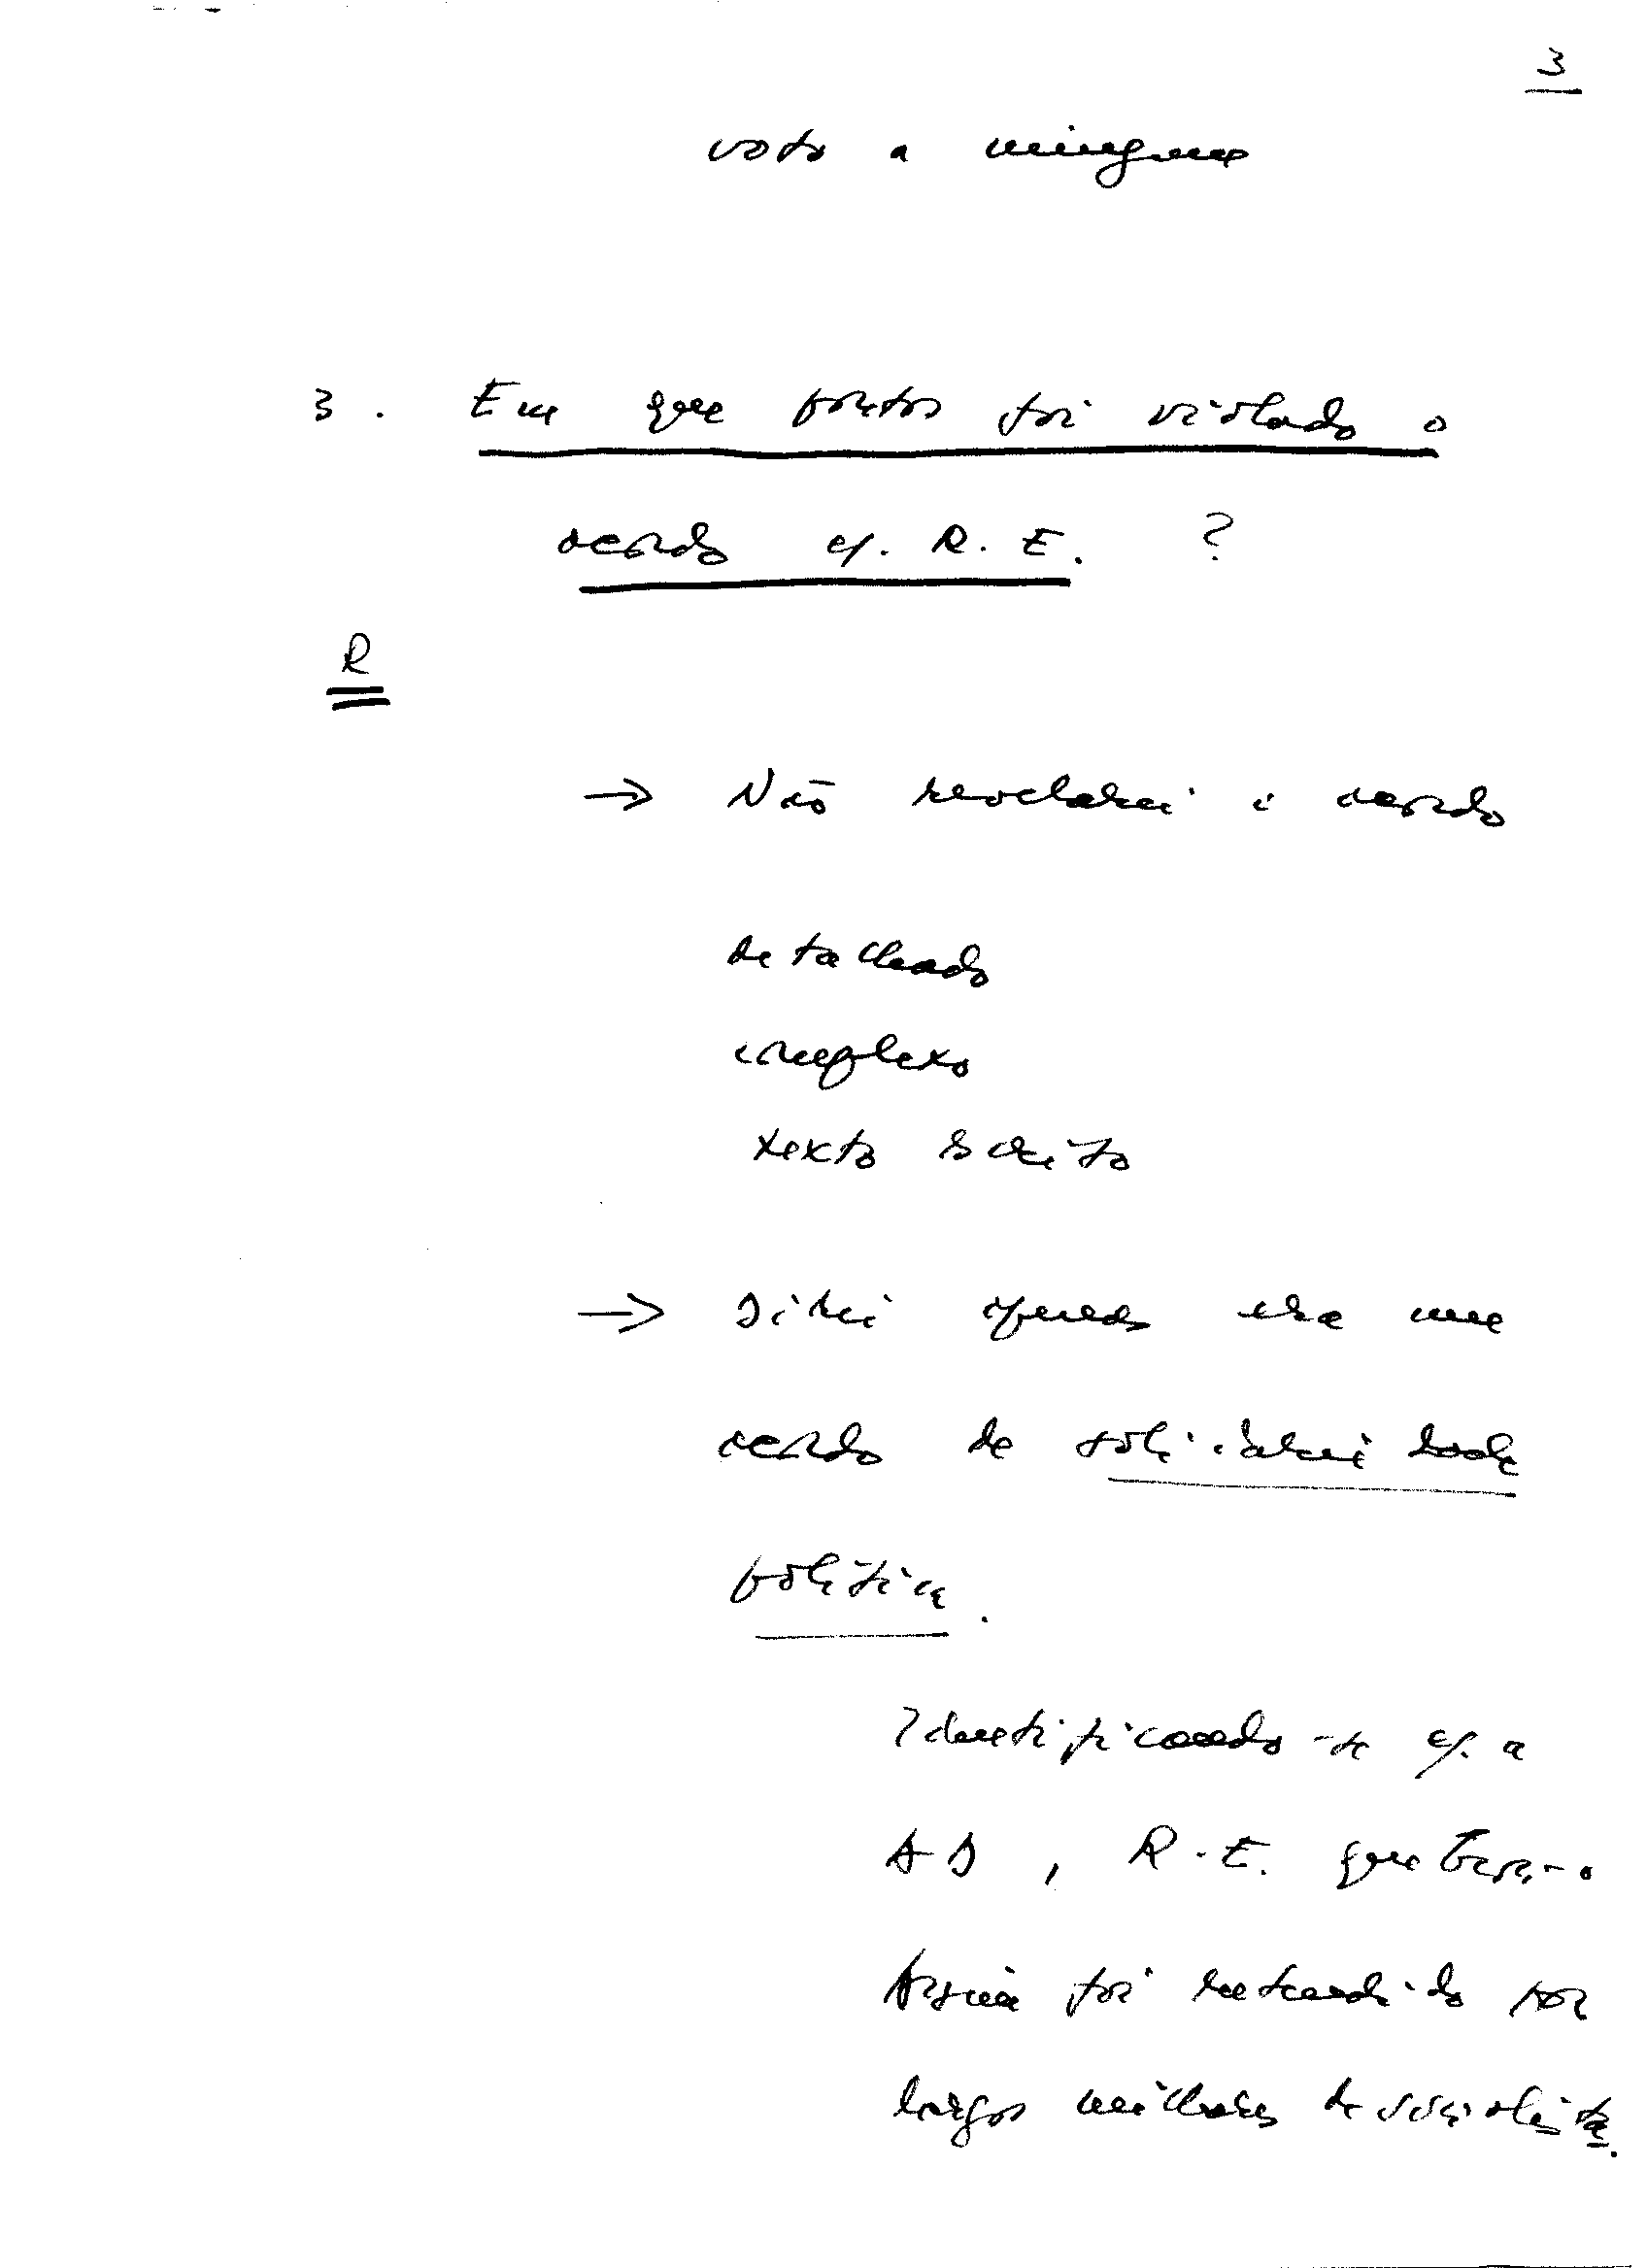 3
voto a ninguem
3. Em que pontos foi violado o
acordo c/. R. E. ?
R
→ Não revelarei o acordo
detalhado
complexo
texto escrito
→ Direi apenas era um
acordo de solidariedade
política.
Identificando-se c/. a
AD, R.E. quebrou-o
Assim foi entendido por
largos milhares de socialistas.